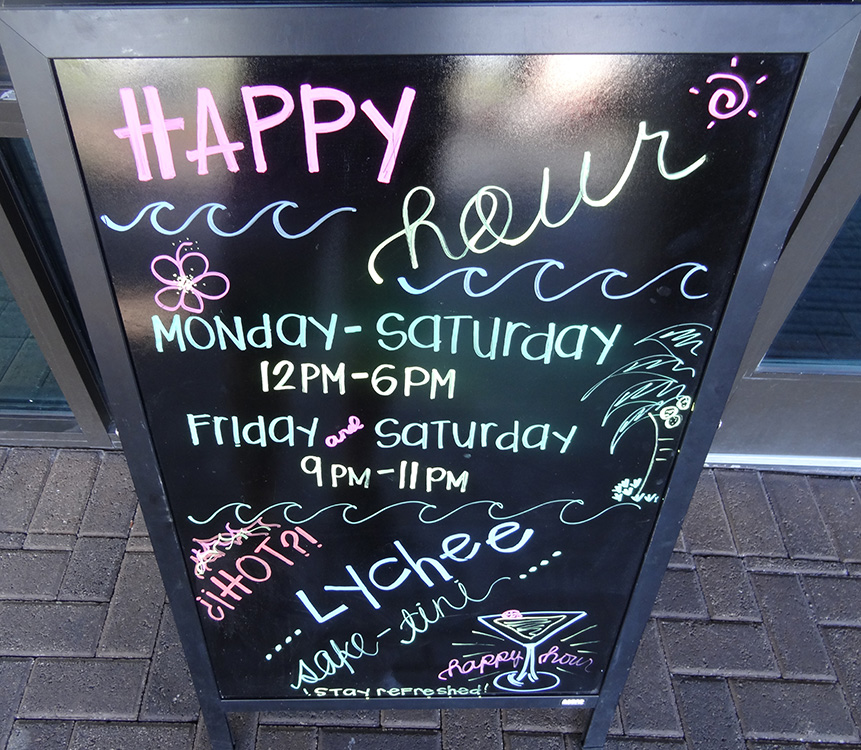 HAPPY
hour
MONday - SaTurday
12PM-6PM
Friday and Saturday
9PM-11PM
¿¡HOT?!
Lychee
sake-tini
happy hour
!Stay refreshed!